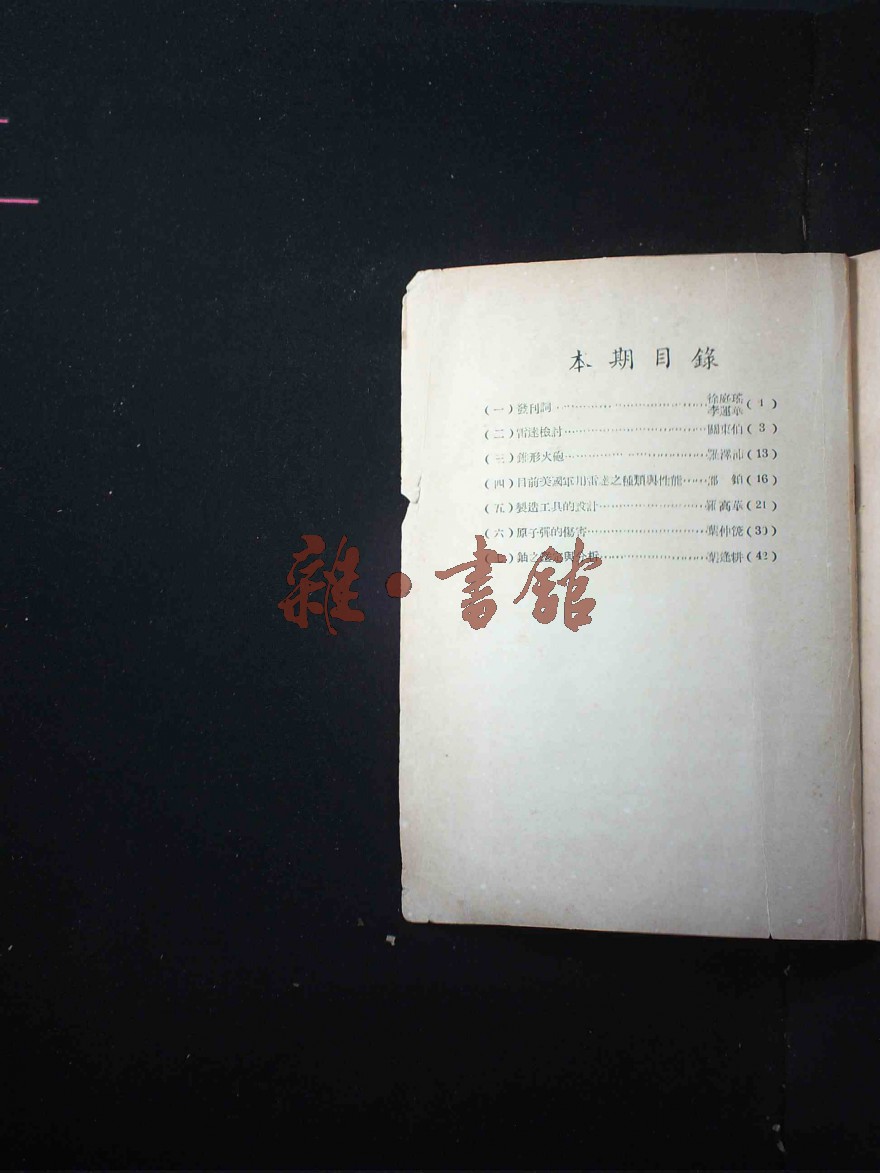 本期目錄
(一)發刊詞 徐庭瑤 李運華 (1)
(二)雷達檢討 關東伯 (3)
(三)錐形火砲 羅澤沛 (13)
(四)目前美國軍用雷達之種類與性能 鄧 (16)
(五)製造工具的設計 羅高華 (21)
(六)原子彈的傷害 葉仲 (3
鈾之 與分析 葉逢耕 (42)
雜·書館